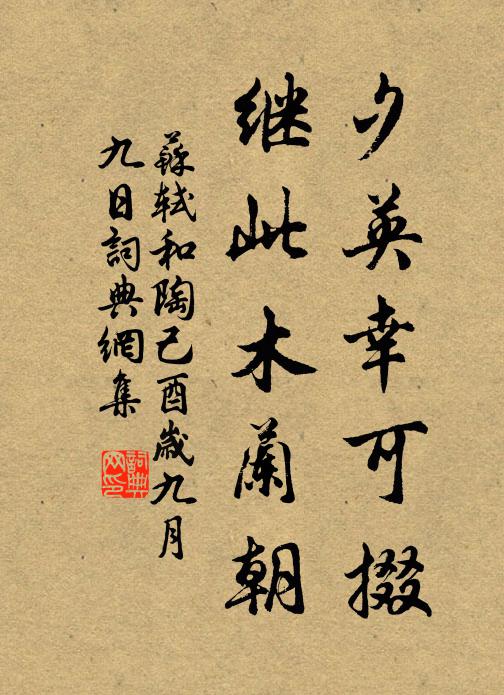 夕英幸可掇
继此木蘭朝
蘇軾和陶己酉歲九月
九日詞典網集
詞典网印